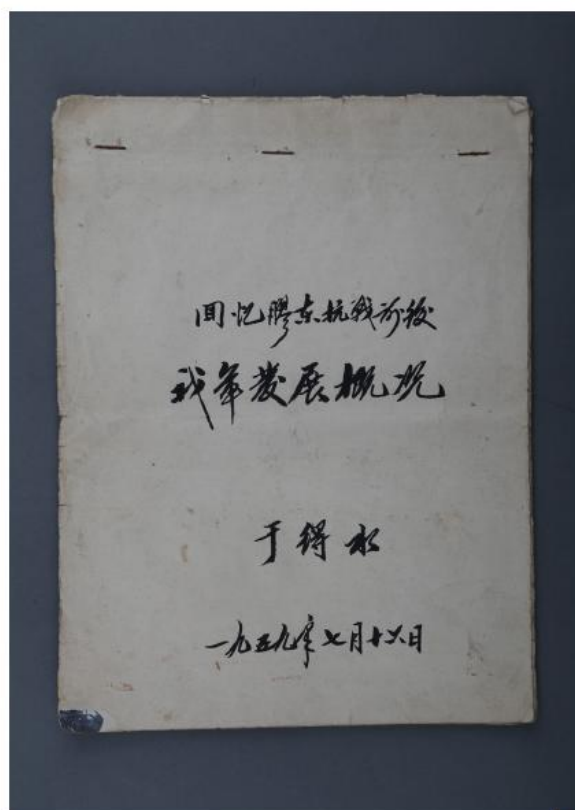 回忆膠东抗战前後
我军發展概况
于得水
一九五九年七月十六日